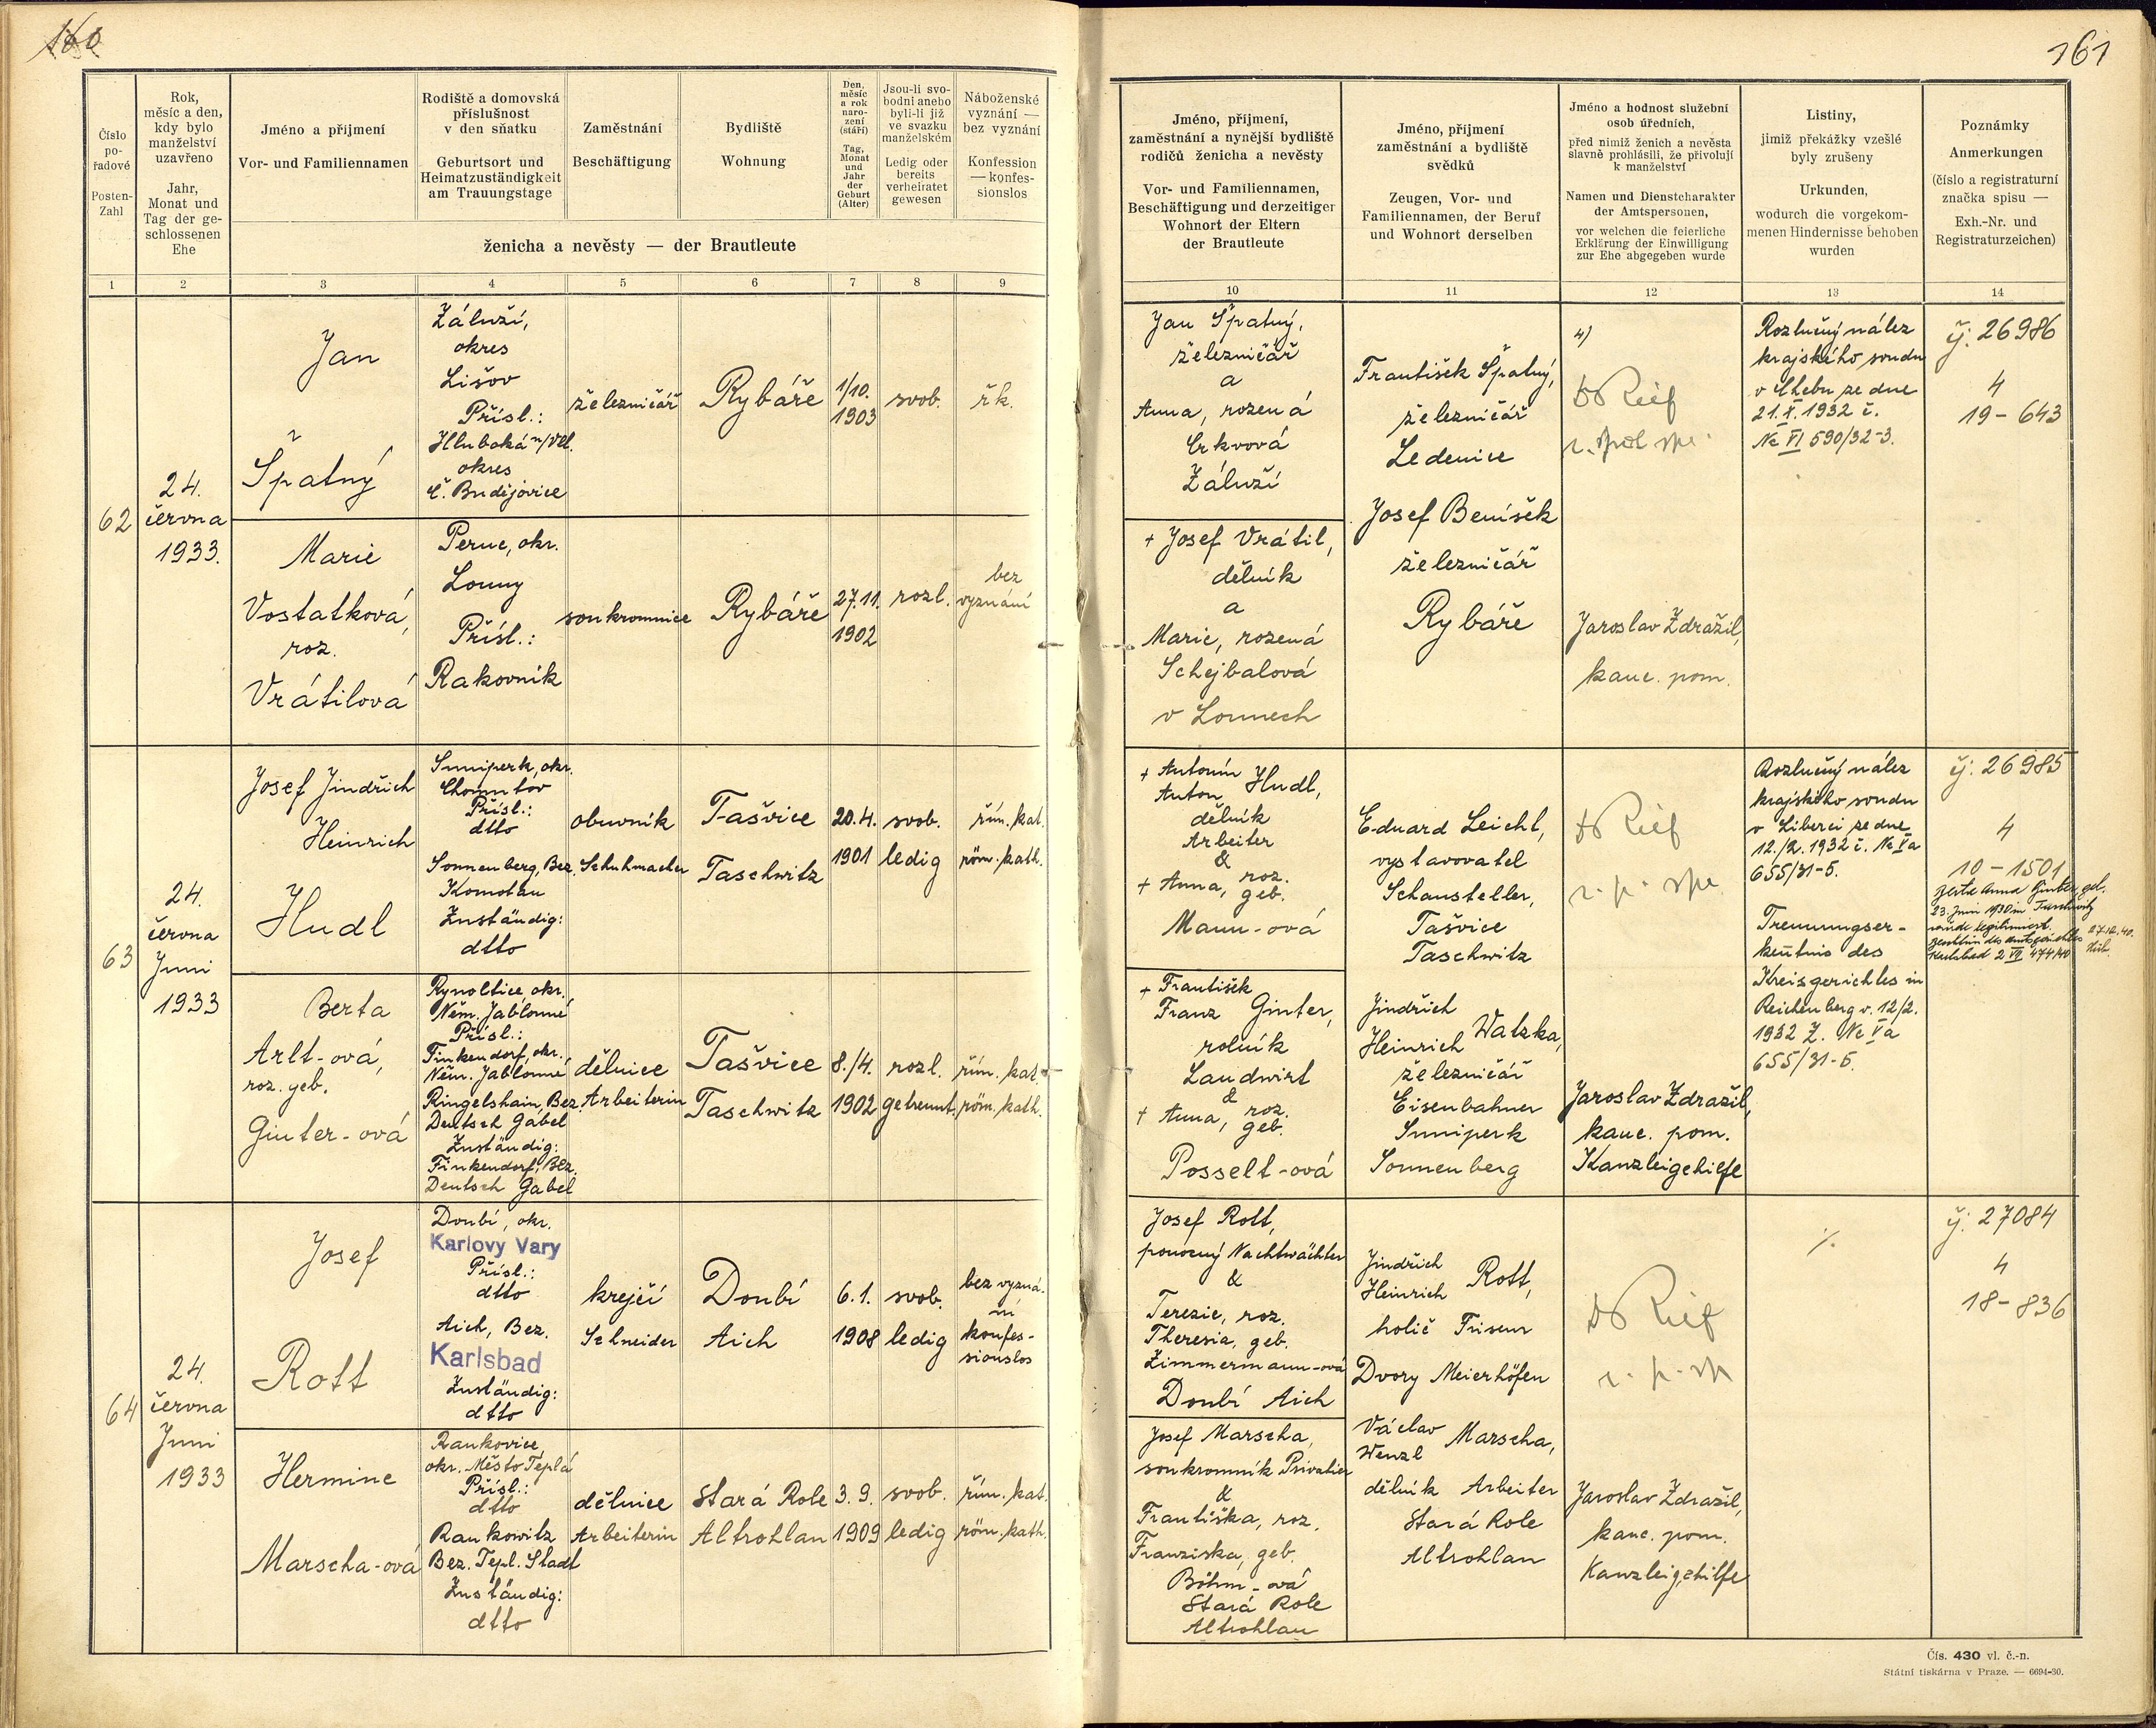 160
161
Číslo
po-
řadové
Posten-
Zahl
Rok,
měsíc a den,
kdy bylo
manželství
uzavřeno
Jahr,
Monat und
Tag der ge-
schlossenen
Ehe
Jméno a příjmení
Vor- und Familiennamen
Rodiště a domovská
příslušnost
v den sňatku
Geburtsort und
Heimatzuständigkeit
am Trauungstage
Zaměstnání
Beschäftigung
Bydliště
Wohnung
Den,
měsíc
a rok
naro-
zení
(stáří)
Tag,
Monat
und
Jahr
der
Geburt
(Alter)
Jsou-li svo-
bodni anebo
byli-li již
ve svazku
manželském
Ledig oder
bereits
verheiratet
gewesen
Náboženské
vyznání —
bez vyznání
Konfession
— konfes-
sionslos
ženicha a nevěsty — der Brautleute
Jméno, příjmení,
zaměstnání a nynější bydliště
rodičů ženicha a nevěsty
Vor- und Familiennamen,
Beschäftigung und derzeitiger
Wohnort der Eltern
der Brautleute
Jméno, příjmení
zaměstnání a bydliště
svědků
Zeugen, Vor- und
Familiennamen, der Beruf
und Wohnort derselben
Jméno a hodnost služební
osob úředních,
před nimiž ženich a nevěsta
slavně prohlásili, že přivolují
k manželství
Namen und Dienstcharakter
der Amtspersonen,
vor welchen die feierliche
Erklärung der Einwilligung
zur Ehe abgegeben wurde
Listiny,
jimiž překážky vzešlé
byly zrušeny
Urkunden,
wodurch die vorgekom-
menen Hindernisse behoben
wurden
Poznámky
Anmerkungen
(číslo a registraturní
značka spisu —
Exh.-Nr. und
Registraturzeichen)
1 2 3 4 5 6 7 8 9 10 11 12 13 14
62
24.
června
1933.
Jan
Špatný
Záluží,
okres
Lišov
Přísl.:
Hluboká n/Vlt.
okres
Č. Budějovice
železničář
Rybáře
1/10.
1903
svob.
řk.
Marie
Vostatková,
roz.
Vrátilová
Peruc, okr.
Louny
Přísl.:
Rakovník
soukromnice
Rybáře
27.11.
1902
rozl.
bez
vyznání
Jan Špatný,
železničář
a
Anna, rozená
Crkvová
Záluží
+ Josef Vrátil,
dělník
a
Marie, rozená
Schejbalová
v Lounech
František Špatný,
železničář
Ledenice
Josef Benišek
železničář
Rybáře
4)
Jaroslav Zdražil,
kanc. pom.
Rozlučný nález
krajského soudu
v Chebu ze dne
21.X.1932 č.
Nc VI 590/32-3.
čj: 26986
4
19-643
63
24.
června
Juni
1933
Josef Jindřich
Heinrich
Hudl
Suniperk, okr.
Chomutov
Přísl.:
dtto
Sonnenberg, Bez.
Komotau
Zuständig:
dtto
obuvník
Schuhmacher
Tašvice
Taschwitz
20.4.
1901
svob.
ledig
řím. kat.
röm. kath.
Berta
Arlt-ová,
roz. geb.
Ginter-ová
Rynoltice, okr.
Něm. Jablonné
Přísl.:
Finkendorf, okr.
Něm. Jablonné
Ringelshain, Bez.
Deutsch Gabel
Zuständig:
Finkendorf, Bez.
Deutsch Gabel
dělnice
Arbeiterin
Tašvice
Taschwitz
8./4.
1902
rozl.
getrennt
řím. kat.
röm. kath.
+ Antonín
Anton Hudl,
dělník
Arbeiter
&
+ Anna, roz.
geb.
Mann-ová
+ František
Franz Ginter,
rolník
Landwirt
&
+ Anna, roz.
geb.
Posselt-ová
Eduard Leichl,
vystavovatel
Schausteller,
Tašvice
Taschwitz
Jindřich
Heinrich Watzka,
železničář
Eisenbahner
Suniperk
Sonnenberg
Jaroslav Zdražil,
kanc. pom.
Kanzleigehilfe
Rozlučný nález
krajského soudu
v Liberci ze dne
12./2. 1932 č. Nc Va
655/31-5.
Trennungser-
kenntnis des
Kreisgerichtes in
Reichenberg v. 12/2.
1932 Z. Nc Va
655/31-5.
čj: 26985
4
10-1501
Anna Ginter, geb.
23. Juni 1930 in Taschwitz
wurde legitimiert.
des Amtsgerichtes
Karlsbad 2 VII 474/40
27.12.40.
64
24.
června
Juni
1933
Josef
Rott
Doubí, okr.
Karlovy Vary
Přísl.:
dtto
Aich, Bez.
Karlsbad
Zuständig:
dtto
krejčí
Schneider
Doubí
Aich
6.1.
1908
svob.
ledig
bez vyzná-
ní
konfes-
sionslos
Hermine
Marscha-ová
Rankovice,
okr. Město Teplá
Přísl.:
dtto
Rankowitz
Bez. Tepl. Stadt
Zuständig:
dtto
dělnice
Arbeiterin
Stará Role
Altrohlau
3. 9.
1909
svob.
ledig
řím. kat.
röm. kath.
Josef Rott,
ponocný Nachtwächter
&
Terezie, roz.
Theresia, geb.
Zimmermann-ová
Doubí Aich
Josef Marscha,
soukromník Privatier
&
Františka, roz.
Franziska, geb.
Böhm-ová
Stará Role
Altrohlau
Jindřich
Heinrich Rott,
holič Friseur
Dvory Meierhöfen
Václav
Wenzl Marscha,
dělník Arbeiter
Stará Role
Altrohlau
Jaroslav Zdražil,
kanc. pom.
Kanzleigehilfe
čj: 27084
4
18-836
Čís. 430 vl. č.-n.
Státní tiskárna v Praze. — 6694-30.